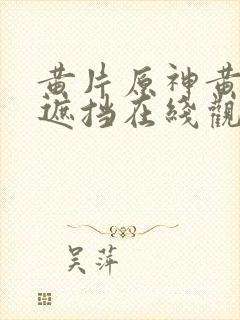 黄片原神黄
遮挡在綫觀
吴萍